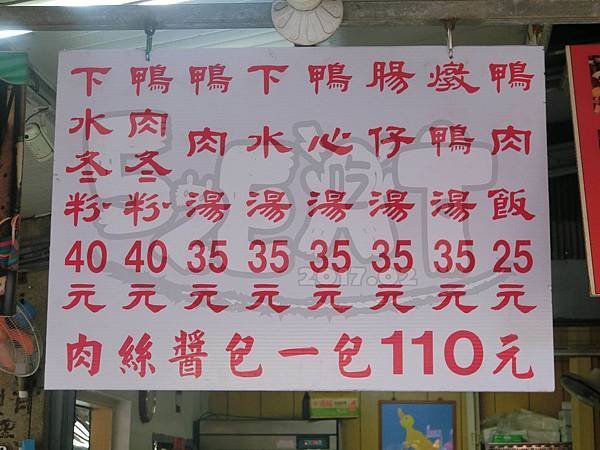 鴨肉飯25元
燉鴨湯35元
腸仔湯35元
鴨心湯35元
下水湯35元
鴨肉湯35元
鴨肉冬粉40元
下水冬粉40元
肉絲醬包一包110元
2017.02